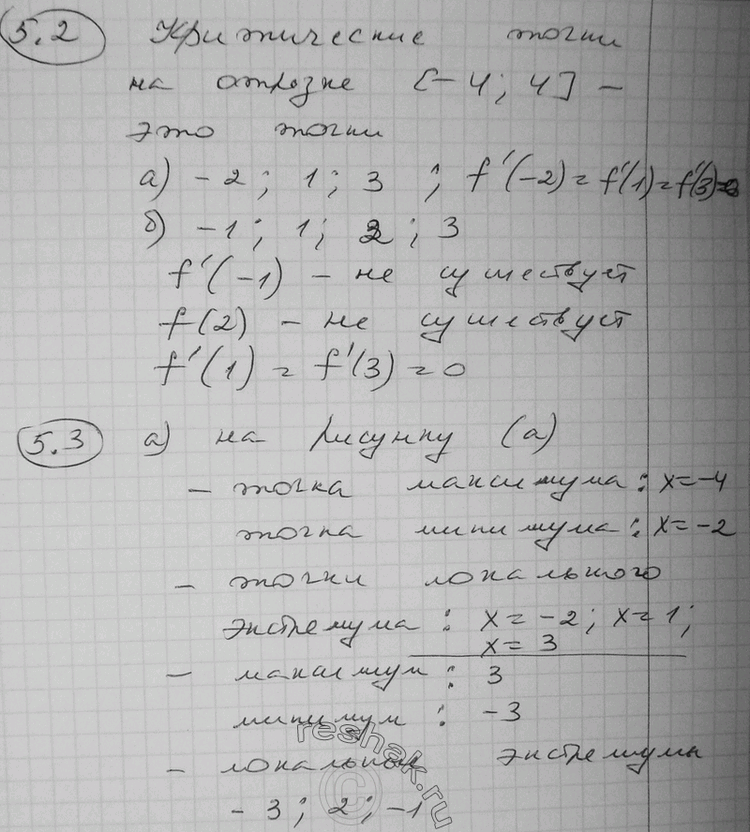 5.2 Критические точки
на отрезке [-4; 4] –
это точки
а) -2; 1; 3 ; f'(-2) = f'(1) = f'(3) = 0
б) -1; 1; 2; 3
f'(-1) – не существует
f(2) – не существует
f'(1) = f'(3) = 0
5.3 а) на рисунку (а)
– точка максимума: x = -4
точка минимума: x = -2
– точки локального
экстремума: x = -2; x = 1;
x = 3
– максимум: 3
минимум: -3
– локальные экстремумы
-3; 2; -1
reshak.ru